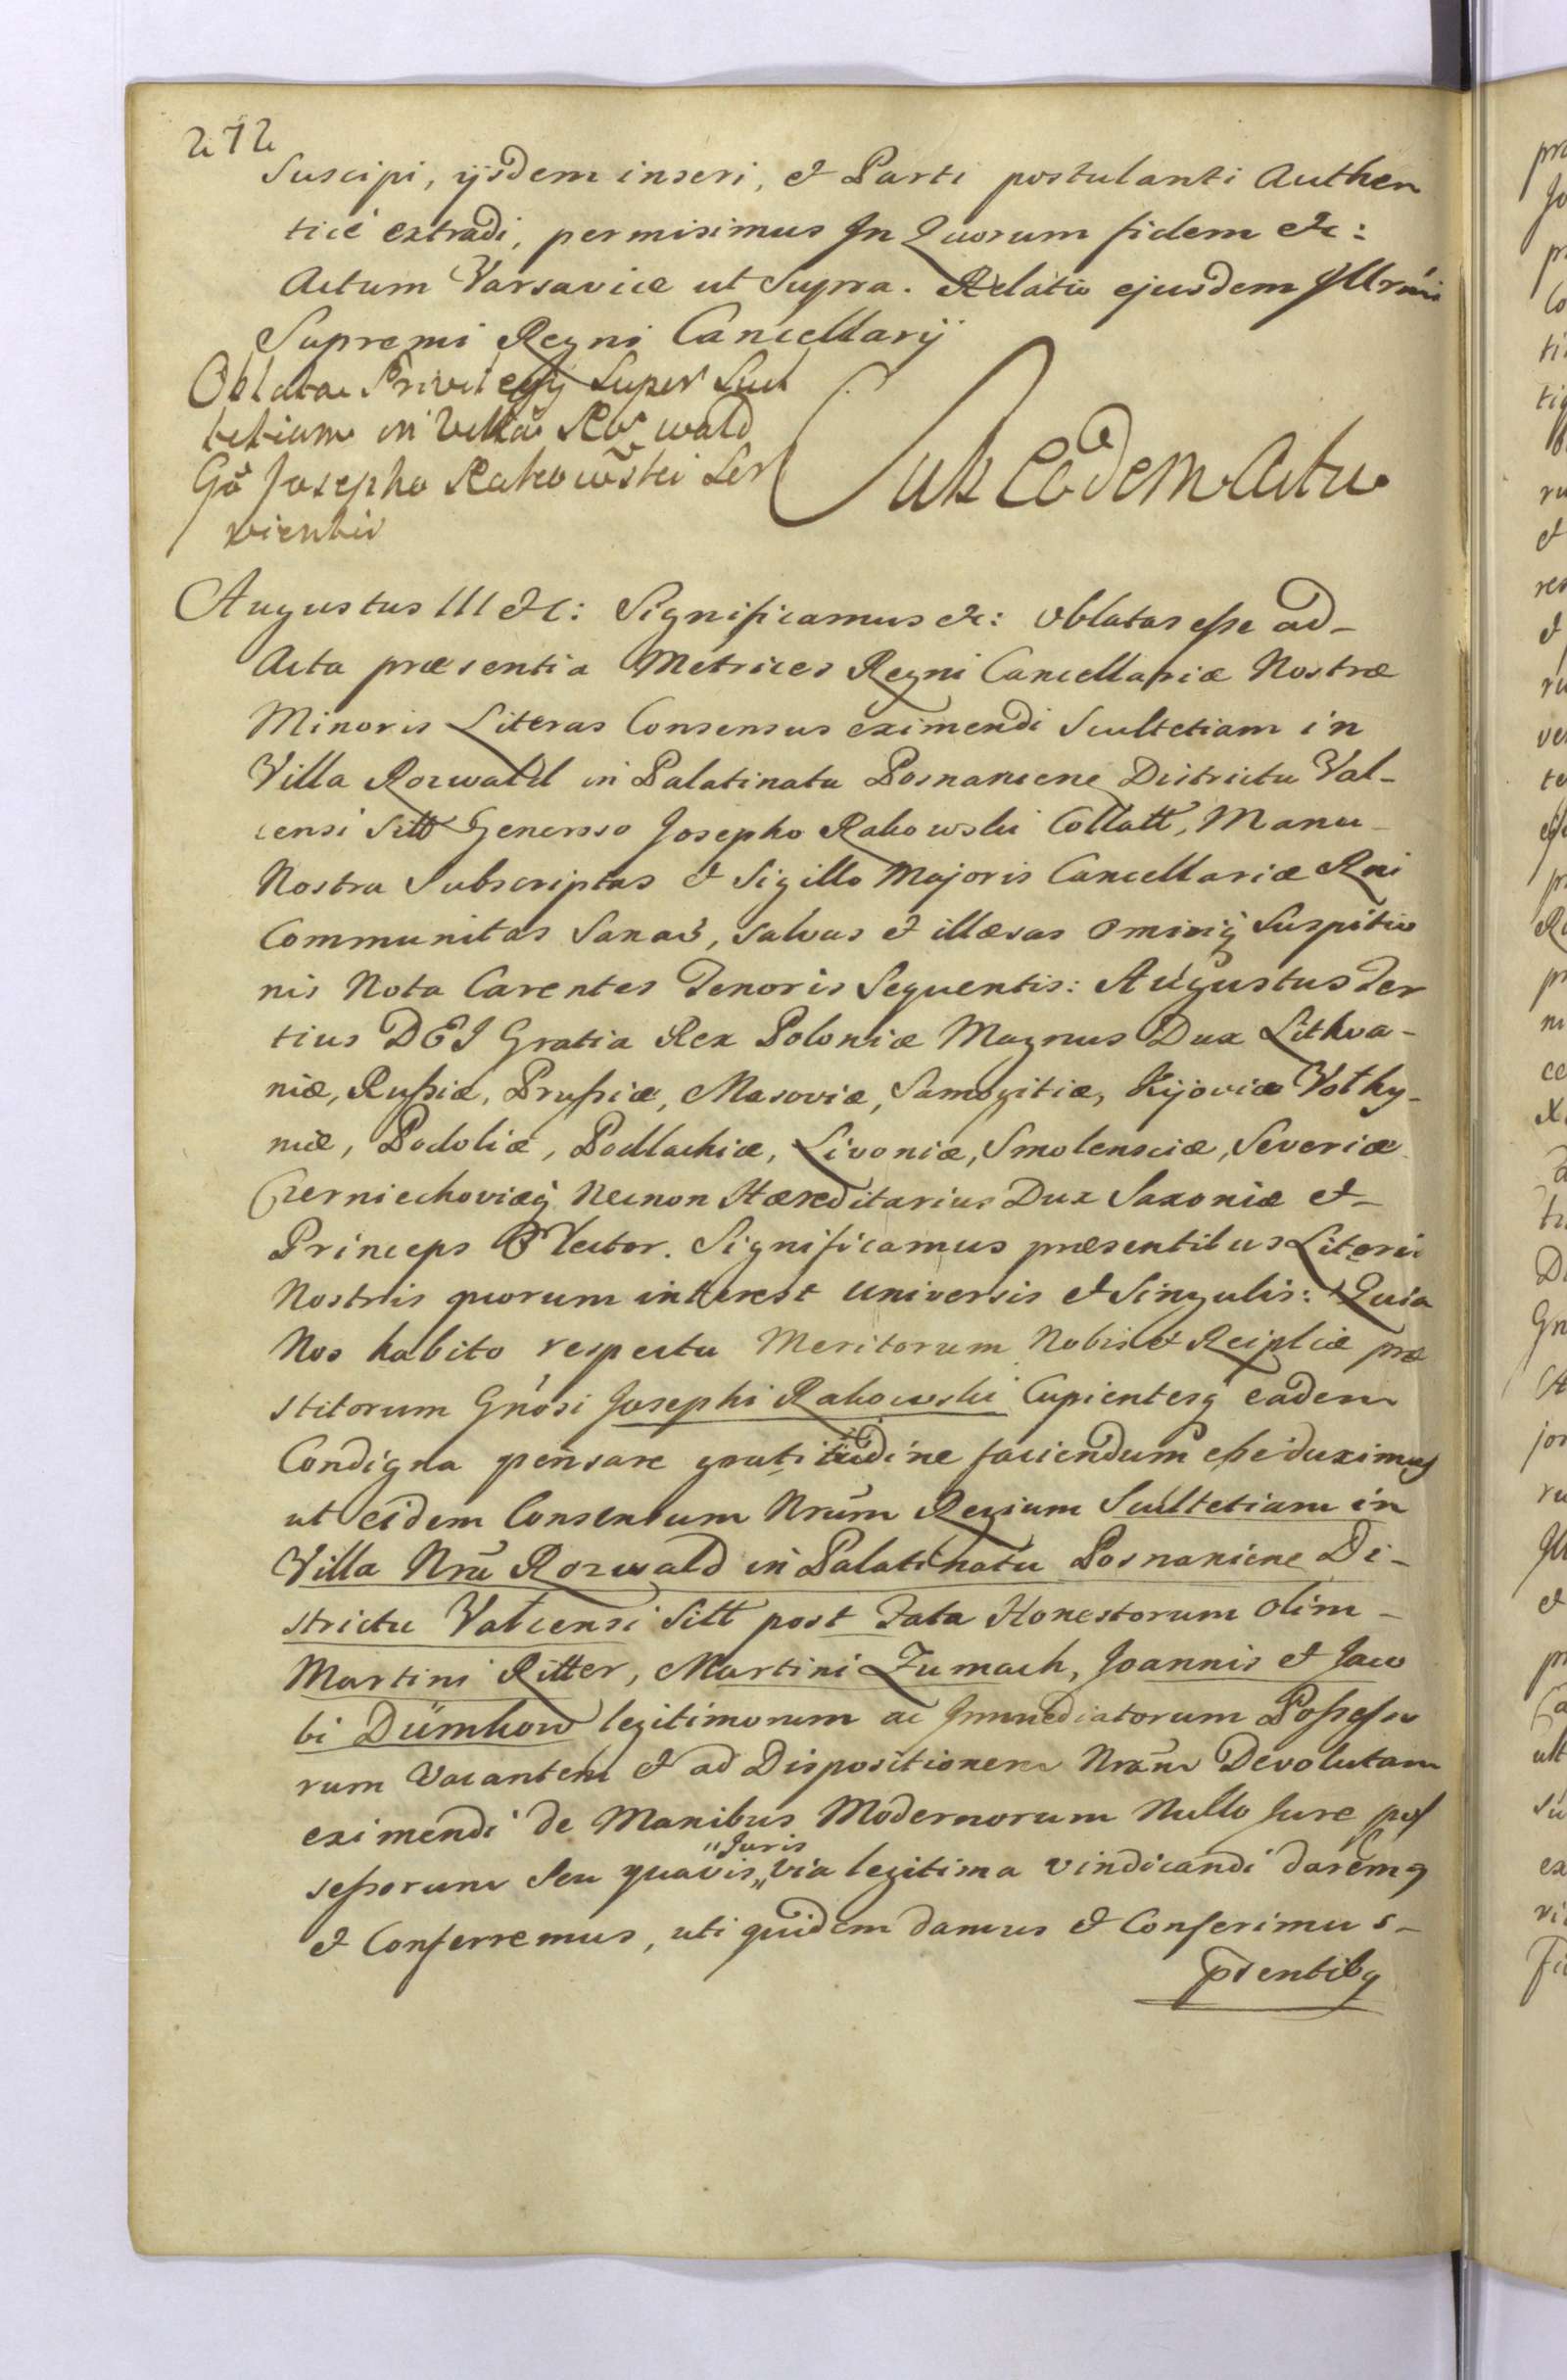 272
Suscipi, ijsdem inseri, et Parti postulanti Authen
ticé extradi, permisimus In Quorum fidem etc:
Actum Varsaviæ ut Supra. Relatio ejusdem Illrmi
Supremi Regni Cancellarij
Oblata Privilegij Super Scul
tetiam in Villa Rozwald
Gō Josepho Rakowski Ser
vientis
Sub Eodem Actu
Augustus III etc: Significamus etc: Oblatas esse ad
Acta præsentia Metrices Regni Cancellariæ Nostræ
Minoris Literas Consensus eximendi Scultetiam in
Villa Rozwald in Palatinatu Posnaniene Districtu Val-
censi Sitt Generoso Josepho Rakowski Collatt, Manu
Nostra Subscriptas et Sigillo Majoris Cancellariæ Rni
Communitas Sanas, salvas et illæsas Omniq Suspitio
nis Nota Carentes Tenoris Sequentis: Augustus Ter
tius DEI Gratia Rex Poloniæ Magnus Dux Lithva-
niæ, Russiæ, Prussiæ, Masoviæ, Samogitiæ, Kijoviæ Volhy-
niæ, Podoliæ, Podlachiæ, Livoniæ, Smolensciæ, Severiæ
Czerniechoviæq Necnon Hæreditarius Dux Saxoniæ et
Princeps Elector. Significamus præsentibus Literis
Nostris quorum interest universis et Singulis: Quia
Nos habito respectu Meritorum Nobis et Reipliæ præ
stitorum Gnosi Josephi Rakowski Cupientesq eadem
Condigna pensare gratitudine faciendum esse duximus
ut eidem Consensum Nrum Regium Scultetiam in
Villa Nra Rozwald in Palatinatu Posnaniene Di-
strictu Valcensi Sitt post Fata Honestorum olim
Martini Ritter, Martini Zumach, Joannis et Jaco
bi Dümkow legitimorum ac Immediatorum Possesso
rum Vacantem et ad Dispositionem Nram Devolutam
eximendi de Manibus Modernorum Nullo Jure pos
sessorum Seu quavis „Juris„ via legitima vindicandi daremq
et Conferremus, uti quidem damus et Conferimus
psentibq